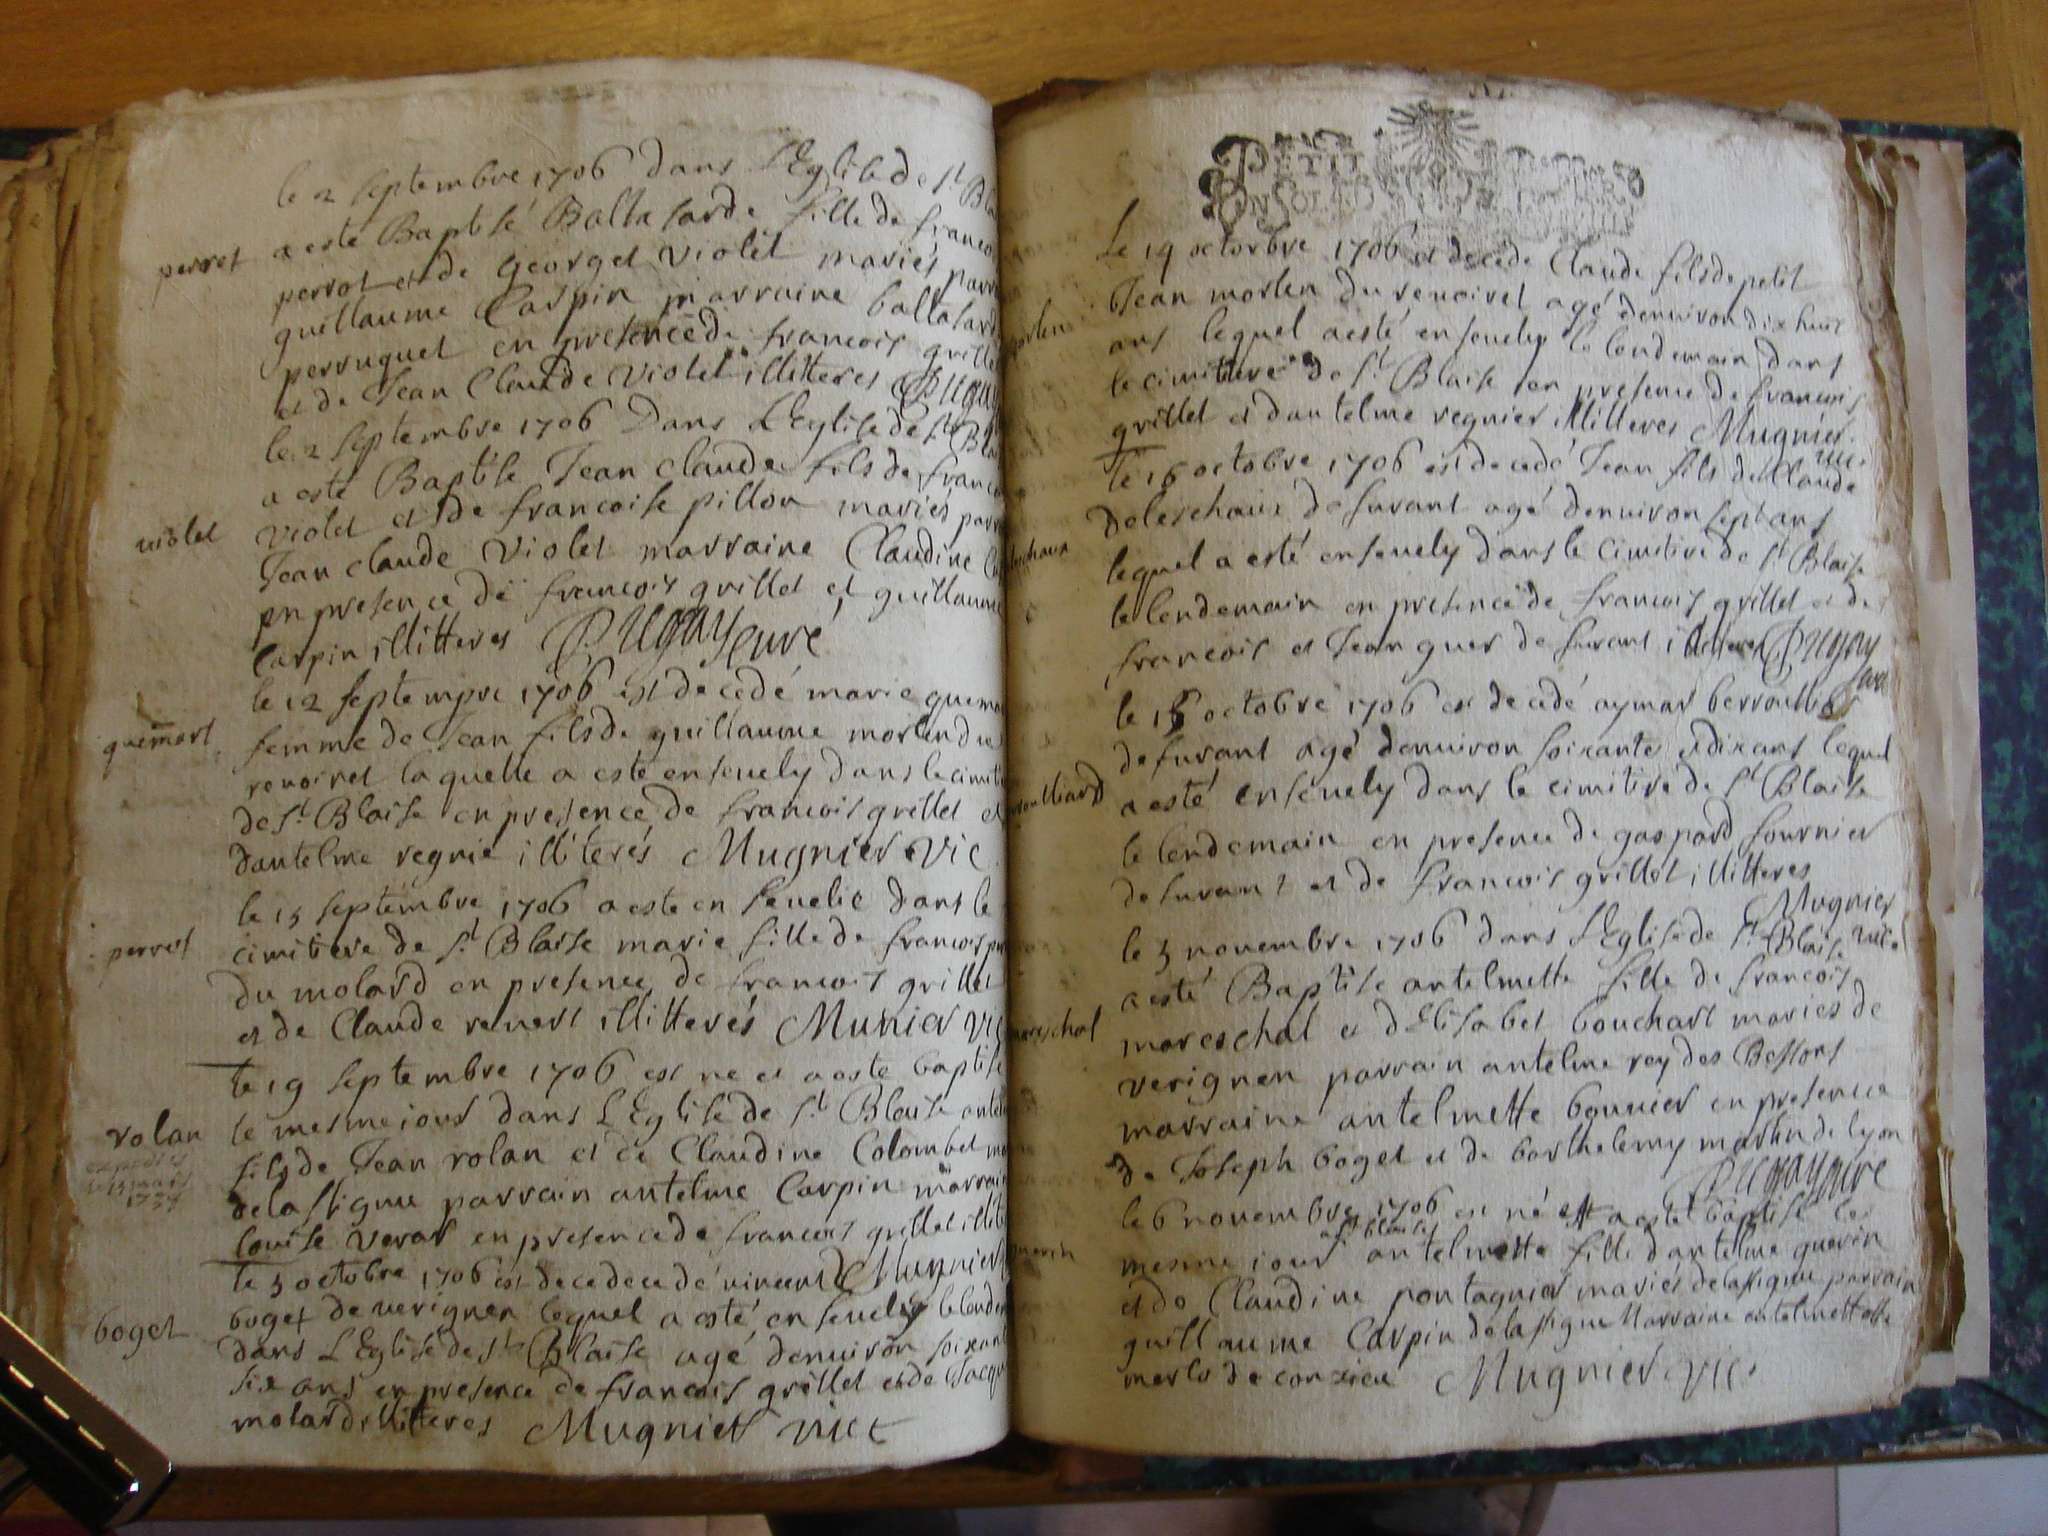 le 2 septembre 1706 dans l'Eglise de St Bla
perret
a esté Baptisé Baltasarde fille de franco
perrot et de George Violet mariés parr
guillaume Carpin marraine baltasard
perruquet en presence de francois grillet
et de Jean Claude Violet illitteres Pugay
le 2 septembre 1706 Dans L'Eglise de St Bla
a esté Baptise Jean claude fils de franco
violet
violet et de francoise pillon mariés parr
Jean claude Violet marraine Claudine
en presence de francois grillet et guillaume
Carpin illitteres Pugay curé
le 12 septempre 1706 est decedé marie quemar
quemart
femme de Jean fils de guillaume morlen du
renoiret laquelle a esté ensevely dans le cimiti
de St Blaise en presence de francois grillet et
dantelme regnie illiterés Mugnier Vic
le 15 septembre 1706 a este en sevelie dans le
perret
cimitiere de St Blaise marie fille de francois per
du molard en presence de francois grillet
et de Claude revert illitterés Munier Vic
le 19 septembre 1706 est ne et a este baptise
rolan
le mesme iour dans L'Eglise de St Blaise antel
expedie
le 13 mars
1774
fils de Jean rolan et de Claudine Colombet ma
de lassignu parrain antelme Carpin marrain
louise verar en presence de francois grillet illite
le 5 octobre 1706 est decedecedé vincent Mugnier
boget
boget de verignen lequel a esté ensevely le lendem
dans L'Eglise de St Blaise agé denviron soixant
six ans en presence de francois grillet et de Jacqu
molard illitteres Mugnier vict
PETIT
Le 19 octorbre 1706 est decede Claude fils de petit
morlen
Jean morlen du renoiret agé denviron dix huit
ans lequel a esté ensevely le lendemain dans
le cimitiere de St Blaise en presence de francois
grillet et dantelme regnier illitteres Mugnier
vic
le 16 octobre 1706 est decedé Jean fils de Claude
Deleschaux de surant agé denviron sept ans
leschaux
lequel a esté ensevely dans le cimitire de St Blaise
le lendemain en presence de francois grillet et de
francois et Jean guer de surant illitteres Pugay
curé
le 15 octobre 1706 est decedé aymar berroulliar
de surant agé denviron soixante et dix ans lequel
roulliard
a esté ensevely dans le cimitire de St Blaise
le lendemain en presence de gaspard fournier
de surant et de francois grillet illitteres
Mugnier
vice
le 5 novembre 1706 dans L'Eglise de St Blaise
a esté Baptise antelmette fille de francois
mareschal
mareschal et d'Elisabet bouchart maries de
verignen parrain antelme rey des Bessons
marraine antelmette bonnier en presence
de Joseph boget et de barthelemy martin de lyon
Pugay curé
le 6 novembre 1706 est né et a esté baptisé le
a St blaise
guerin
mesme iour antelmette fille dantelme guerin
et de Claudine pontagnier mariés de lassignu parrain
guillaume Carpin de lassignu Marraine antelmette
merlo de conzieu Mugnier Vic